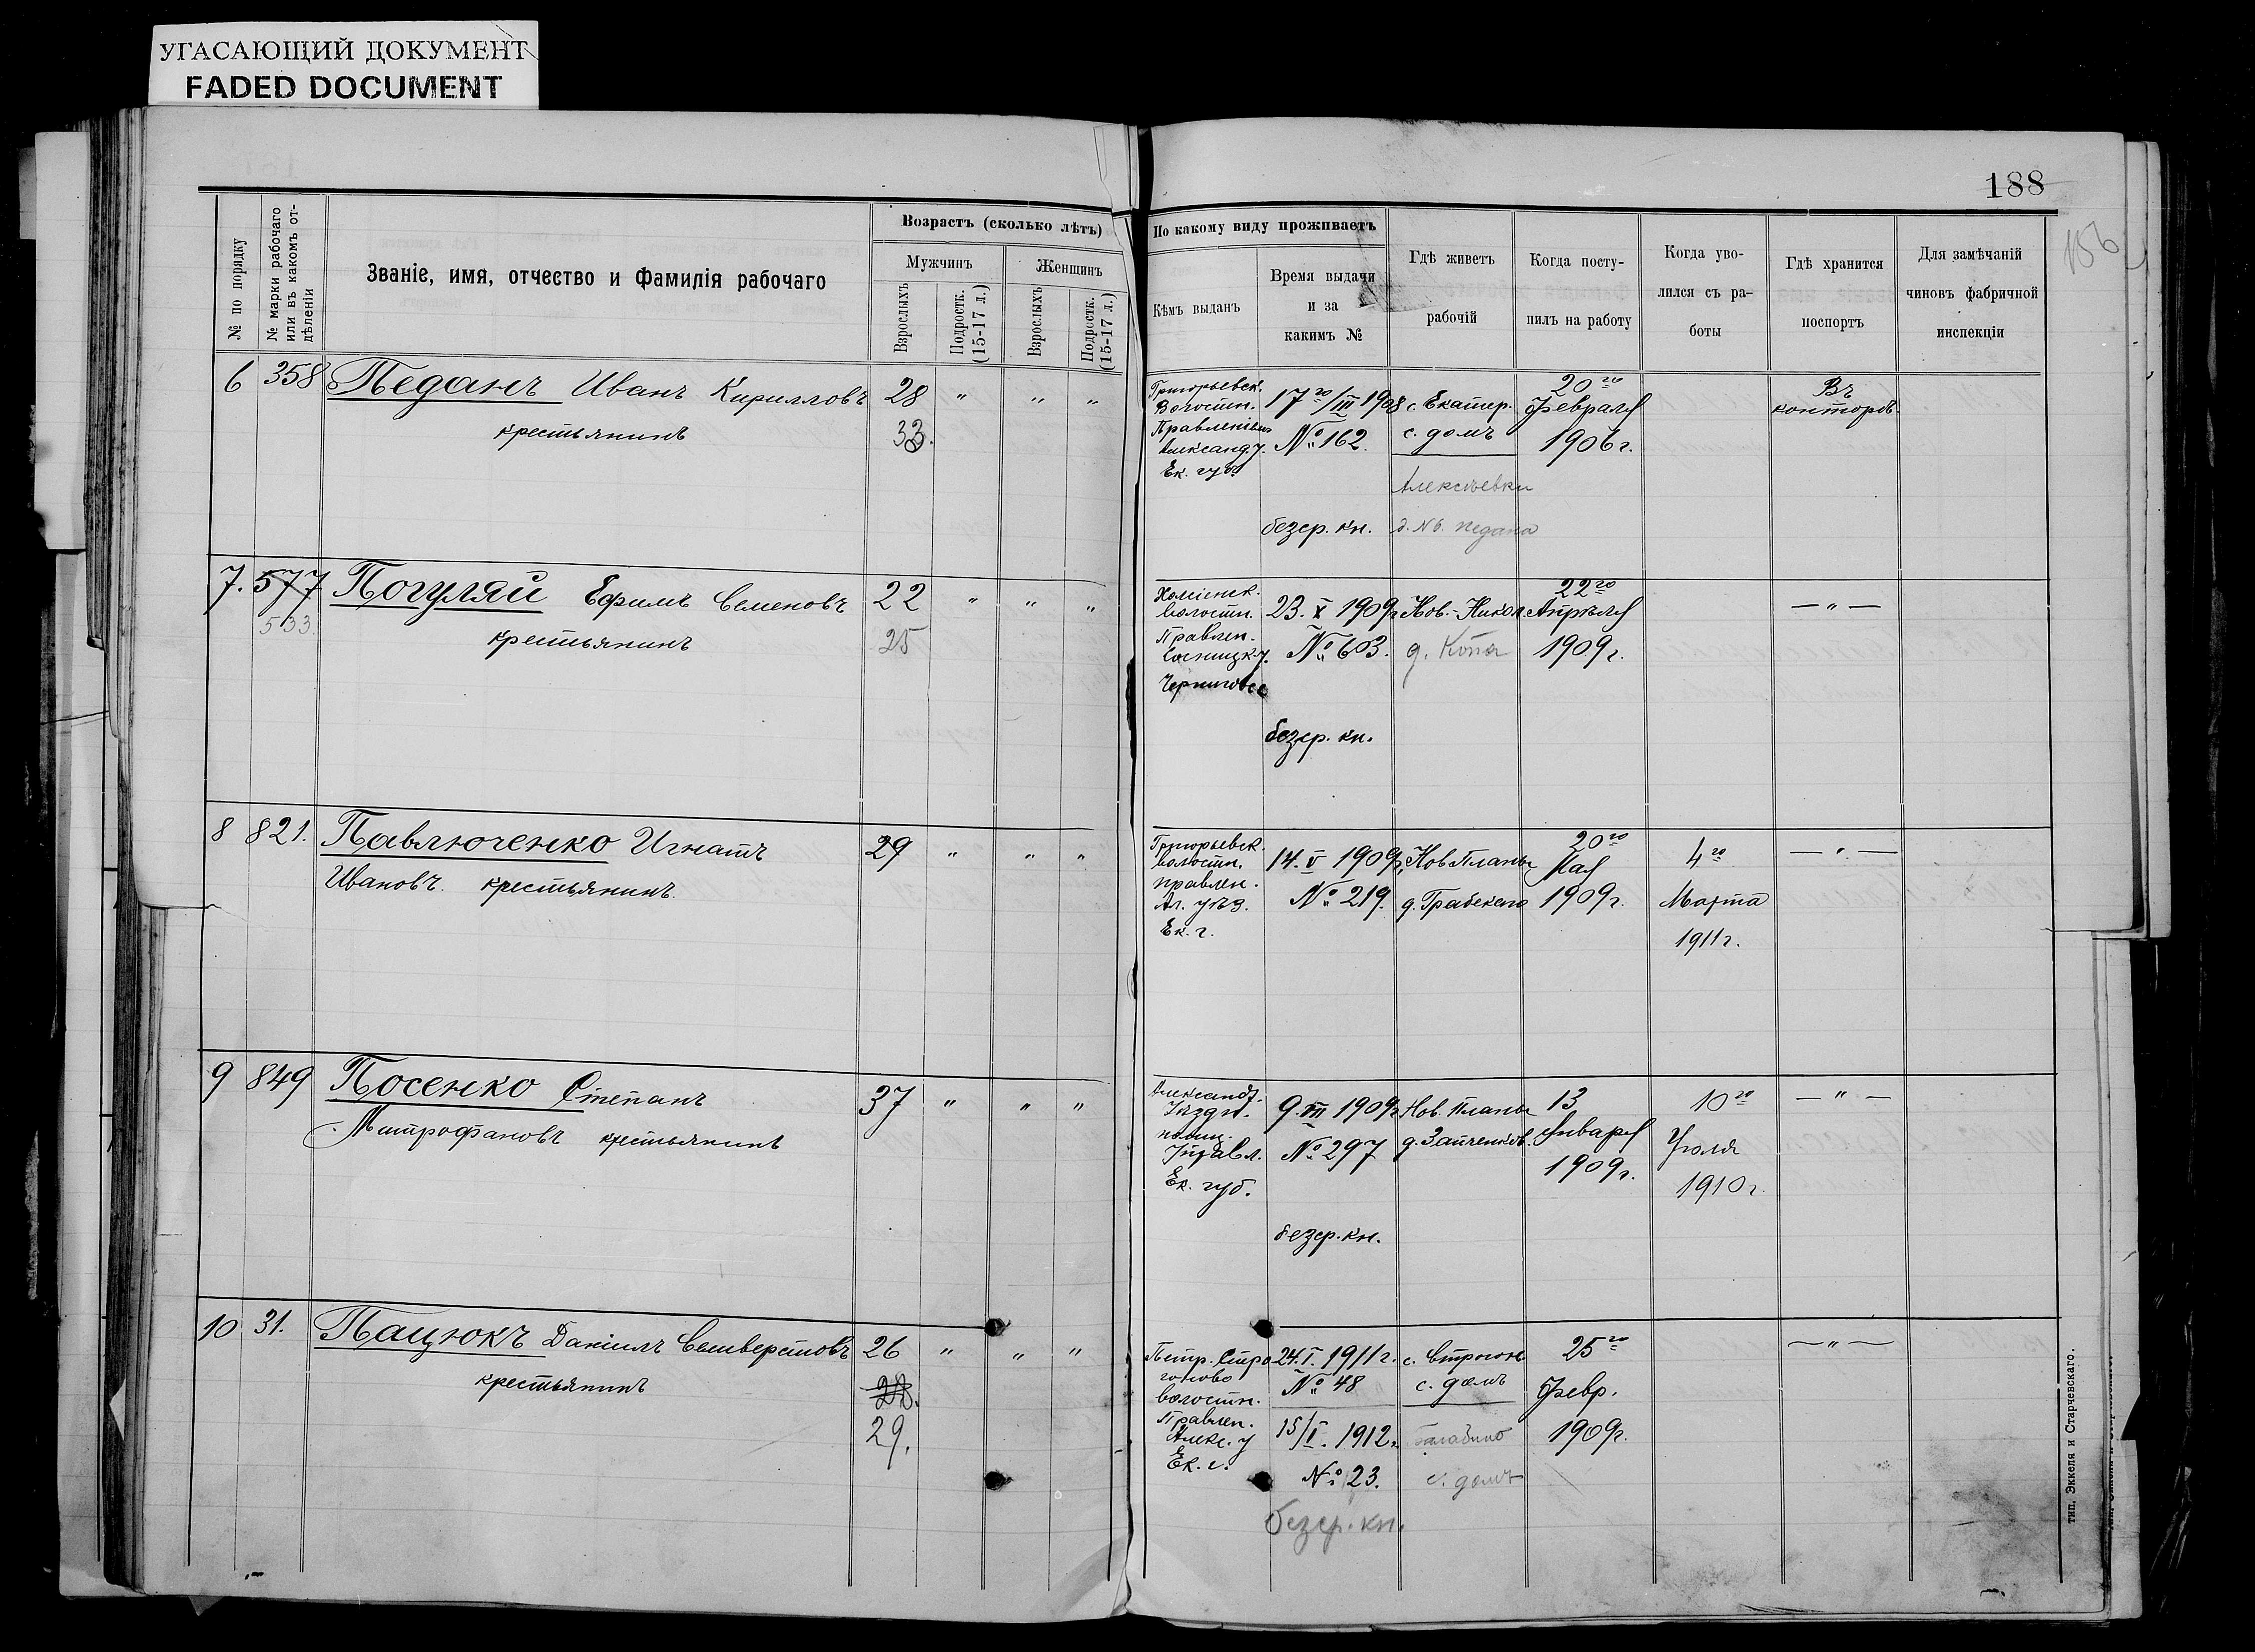 УГАСАЮЩИЙ ДОКУМЕНТ
FADED DOCUMENT
188
№ по порядку
№ марки рабочаго
или въ какомъ от-
дѣленіи
Званіе, имя, отчество и фамилія рабочаго
Возрастъ (сколько лѣтъ)
Мужчинъ
Женщинъ
Взрослыхъ
Подростк.
(15-17 л.)
Взрослыхъ
Подростк.
(15-17 л.)
По какому виду проживаетъ
Кѣмъ выданъ
Время выдачи
и за
какимъ №
Гдѣ живетъ
рабочій
Когда посту-
пилъ на работу
Когда уво-
лился съ ра-
боты
Гдѣ хранится
поспортъ
Для замѣчаній
чиновъ фабричной
инспекціи
6 358 Педанъ Иванъ Кирилловъ 28 " " "
крестьянинъ 33.
Григорьевск.
Волостн.
Правленіемъ
Александ. у.
Ек. губ.
17го/III 1908
№ 162.
безср. кн.
с. Екатер.
с. домъ
Алексѣевка
д. № 6. Педана
20го
Февраля
1906 г.
Въ
конторѣ
7. 577 Погуляй Ефимъ Семеновъ 22 " " "
533. крестьянинъ 25
волостн.
Правлен.
Сосницк. у.
23. X 1909 г.
№ 603.
безср. кн.
Нов.-Никол.
д. Копа
22го
Апрѣля
1909 г.
— " —
8 821. Павлюченко Игнатъ 29 " " "
Ивановъ. крестьянинъ.
Григорьевск.
волостн.
правлен.
Ал. уѣз.
Ек. г.
14. V 1909 г.
№ 219.
Нов. Планы
20го
Мая
1909 г.
4го
Марта
1911 г.
— " —
9 849 Посенко Степанъ 37 " " "
Митрофановъ крестьянинъ
Александр.
Уѣздн.
полиц.
Управл.
Ек. губ.
9. VII 1909 г.
№ 297
безср. кн.
Нов. Планы
13
Января
1909 г.
10го
Іюля
1910 г.
— " —
10 31. Пацюкъ Даніилъ Селиверстовъ 26 " " "
крестьянинъ 28.
29.
Петр. Стро
гоново
волостн.
Правлен.
Алекс. у
Ек. г.
24. I. 1911 г.
№ 48
15/I. 1912 г.
№ 23.
безср. кн.
с. домъ
Балабино
с. домъ
25го
Февр.
1909 г.
— " —
тип. Эккеля и Старчевскаго.